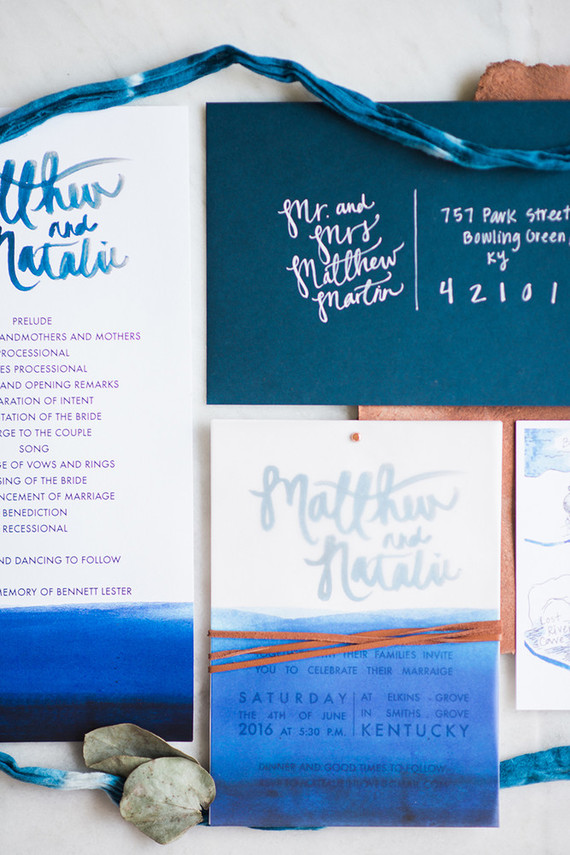 and
Natalie
PRELUDE
AND MOTHERS
PROCESSIONAL
PROCESSIONAL
AND OPENING REMARKS
OF INTENT
OF THE BRIDE
TO THE COUPLE
SONG
OF VOWS AND RINGS
OF THE BRIDE
OF MARRIAGE
BENEDICTION
RECESSIONAL
DANCING TO FOLLOW
MEMORY OF BENNETT LESTER
Mr. and
Mrs
Matthew
Martin
757 Park Street
Bowling Green,
Ky
42101
Matthew
and
Natalie
THEIR FAMILIES INVITE
YOU TO CELEBRATE THEIR MARRAIGE
SATURDAY
THE 4TH OF JUNE
2016 AT 5:30 P.M.
AT ELKINS GROVE
IN SMITHS GROVE
KENTUCKY
DINNER AND GOOD TIMES TO FOLLOW
Lost
River
Cave